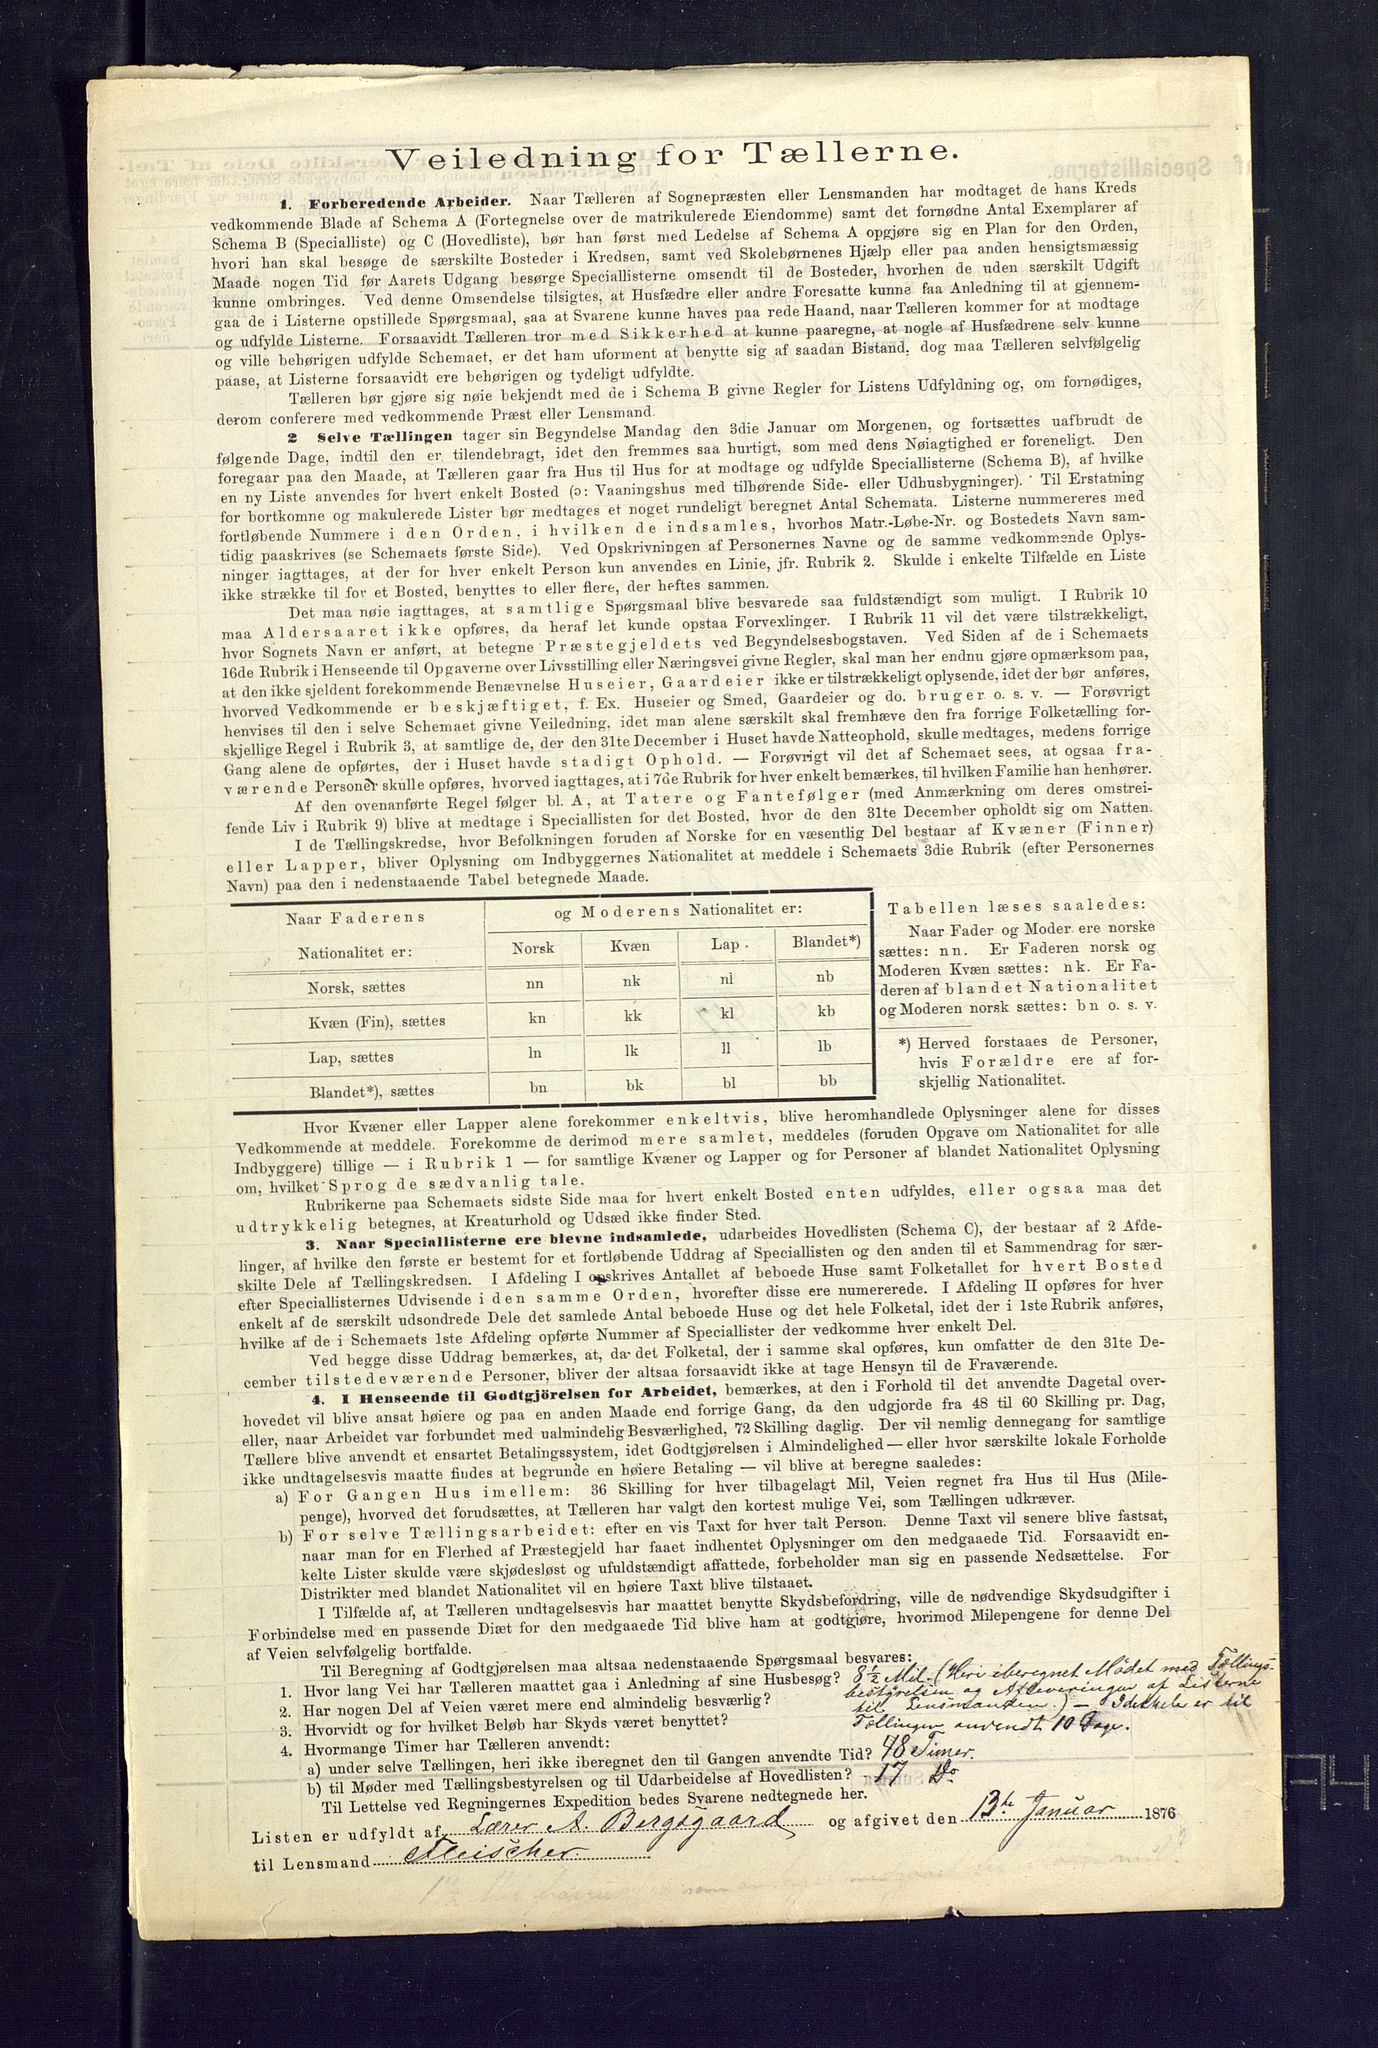 Veiledning for Tællerne.
1. Forberedende Arbeider. Naar Tælleren af Sognepræsten eller Lensmanden har modtaget de hans Kreds
vedkommende Blade af Schema A (Fortegnelse over de matrikulerede Eiendomme) samt det fornødne Antal Exemplarer af
Schema B (Specialliste) og C (Hovedliste), bør han først med Ledelse af Schema A opgjøre sig en Plan for den Orden,
hvori han skal besøge de særskilte Bosteder i Kredsen, samt ved Skolebørnenes Hjælp eller paa anden hensigtsmæssig
Maade nogen Tid før Aarets Udgang besørge Speciallisterne omsendt til de Bosteder, hvorhen de uden særskilt Udgift
kunne ombringes. Ved denne Omsendelse tilsigtes, at Husfædre eller andre Foresatte kunne faa Anledning til at gjennem-
gaa de i Listerne opstillede Spørgsmaal, saa at Svarene kunne haves paa rede Haand, naar Tælleren kommer for at modtage
og udfylde Listerne. Forsaavidt Tælleren tror med Sikkerhed at kunne paaregne, at nogle af Husfædrene selv kunne
og ville behørigen udfylde Schemaet, er det ham uforment at benytte sig af saadan Bistand, dog maa Tælleren selvfølgelig
paase, at Listerne forsaavidt ere behørigen og tydeligt udfyldte.
Tælleren bør gjøre sig nøie bekjendt med de i Schema B givne Regler for Listens Udfyldning og, om fornødiges,
derom conferere med vedkommende Præst eller Lensmand.
2 Selve Tællingen tager sin Begyndelse Mandag den 3die Januar om Morgenen, og fortsættes uafbrudt de
følgende Dage, indtil den er tilendebragt, idet den fremmes saa hurtigt, som med dens Nøiagtighed er foreneligt. Den
foregaar paa den Maade, at Tælleren gaar fra Hus til Hus for at modtage og udfylde Speciallisterne (Schema B), af hvilke
en ny Liste anvendes for hvert enkelt Bosted (ɔ: Vaaningshus med tilhørende Side- eller Udhusbygninger). Til Erstatning
for bortkomne og makulerede Lister bør medtages et noget rundeligt beregnet Antal Schemata. Listerne nummereres med
fortløbende Nummere i den Orden, i hvilken de indsamles, hvorhos Matr.-Løbe-Nr. og Bostedets Navn sam-
tidig paaskrives (se Schemaets første Side). Ved Opskrivningen af Personernes Navne og de samme vedkommende Oplys-
ninger iagttages, at der for hver enkelt Person kun anvendes en Linie, jfr. Rubrik 2. Skulde i enkelte Tilfælde en Liste
ikke strække til for et Bosted, benyttes to eller flere, der heftes sammen.
Det maa nøie iagttages, at samtlige Spørgsmaal blive besvarede saa fuldstændigt som muligt. I Rubrik 10
maa Aldersaaret ikke opføres, da heraf let kunde opstaa Forvexlinger. I Rubrik 11 vil det være tilstrækkeligt,
hvor Sognets Navn er anført, at betegne Præstegjeldets ved Begyndelsesbogstaven. Ved Siden af de i Schemaets
16de Rubrik i Henseende til Opgaverne over Livsstilling eller Næringsvei givne Regler, skal man her endnu gjøre opmærksom paa,
at den ikke sjeldent forekommende Benævnelse Huseier, Gaardeier ikke er tilstrækkeligt oplysende, idet der bør anføres,
hvorved Vedkommende er beskjæftiget, f. Ex. Huseier og Smed, Gaardeier og do. bruger o. s. v. — Forøvrigt
henvises til den i selve Schemaet givne Veiledning, idet man alene særskilt skal fremhæve den fra forrige Folketælling for-
skjellige Regel i Rubrik 3, at samtlige de, der den 31te December i Huset havde Natteophold, skulle medtages, medens forrige
Gang alene de opførtes, der i Huset havde stadigt Ophold. — Forøvrigt vil det af Schemaet sees, at ogsaa fra-
værende Personer skulle opføres, hvorved iagttages, at i 7de Rubrik for hver enkelt bemærkes, til hvilken Familie han henhører.
Af den ovenanførte Regel følger bl. A, at Tatere og Fantefølger (med Anmærkning om deres omstrei-
fende Liv i Rubrik 9) blive at medtage i Speciallisten for det Bosted, hvor de den 31te December opholdt sig om Natten.
I de Tællingskredse, hvor Befolkningen foruden af Norske for en væsentlig Del bestaar af Kvæner (Finner)
eller Lapper, bliver Oplysning om Indbyggernes Nationalitet at meddele i Schemaets 3die Rubrik (efter Personernes
Navn) paa den i nedenstaaende Tabel betegnede Maade.
Naar Faderens
Nationalitet er:
og Moderens Nationalitet er:
Norsk Kvæn Lap. Blandet*)
Norsk, sættes nn nk nl nb
Kvæn (Fin), sættes kn kk kl kb
Lap, sættes ln lk ll lb
Blandet*), sættes bn bk bl bb
Tabellen læses saaledes:
Naar Fader og Moder ere norske
sættes: nn. Er Faderen norsk og
Moderen Kvæn sættes: nk. Er Fa-
deren af blandet Nationalitet
og Moderen norsk sættes: bn o. s. v.
*) Herved forstaaes de Personer,
hvis Forældre ere af for-
skjellig Nationalitet.
Hvor Kvæner eller Lapper alene forekommer enkeltvis, blive heromhandlede Oplysninger alene for disses
Vedkommende at meddele. Forekomme de derimod mere samlet, meddeles (foruden Opgave om Nationalitet for alle
Indbyggere) tillige — i Rubrik 1 — for samtlige Kvæner og Lapper og for Personer af blandet Nationalitet Oplysning
om, hvilket Sprog de sædvanlig tale.
Rubrikerne paa Schemaets sidste Side maa for hvert enkelt Bosted enten udfyldes, eller ogsaa maa det
udtrykkelig betegnes, at Kreaturhold og Udsæd ikke finder Sted.
3. Naar Speciallisterne ere blevne indsamlede, udarbeides Hovedlisten (Schema C), der bestaar af 2 Afde-
linger, af hvilke den første er bestemt for et fortløbende Uddrag af Speciallisten og den anden til et Sammendrag for sær-
skilte Dele af Tællingskredsen. I Afdeling I opskrives Antallet af beboede Huse samt Folketallet for hvert Bosted
efter Speciallisternes Udvisende i den samme Orden, hvorefter disse ere numererede. I Afdeling II opføres for hver
enkelt af de særskilt udsondrede Dele det samlede Antal beboede Huse og det hele Folketal, idet der i 1ste Rubrik anføres,
hvilke af de i Schemaets 1ste Afdeling opførte Nummer af Speciallister der vedkomme hver enkelt Del.
Ved begge disse Uddrag bemærkes, at, da det Folketal, der i samme skal opføres, kun omfatter de den 31te De-
cember tilstedeværende Personer, bliver der altsaa forsaavidt ikke at tage Hensyn til de Fraværende.
4. I Henseende til Godtgjörelsen for Arbeidet, bemærkes, at den i Forhold til det anvendte Dagetal over-
hovedet vil blive ansat høiere og paa en anden Maade end forrige Gang, da den udgjorde fra 48 til 60 Skilling pr. Dag,
eller, naar Arbeidet var forbundet med ualmindelig Besværlighed, 72 Skilling daglig. Der vil nemlig dennegang for samtlige
Tællere blive anvendt et ensartet Betalingssystem, idet Godtgjørelsen i Almindelighed — eller hvor særskilte lokale Forholde
ikke undtagelsesvis maatte findes at begrunde en høiere Betaling — vil blive at beregne saaledes:
a) For Gangen Hus imellem: 36 Skilling for hver tilbagelagt Mil, Veien regnet fra Hus til Hus (Mile-
penge), hvorved det forudsættes, at Tælleren har valgt den kortest mulige Vei, som Tællingen udkræver.
b) For selve Tællingsarbeidet: efter en vis Taxt for hver talt Person. Denne Taxt vil senere blive fastsat,
naar man for en Flerhed af Præstegjeld har faaet indhentet Oplysninger om den medgaaede Tid. Forsaavidt en-
kelte Lister skulde være skjødesløst og ufuldstændigt affattede, forbeholder man sig en passende Nedsættelse. For
Distrikter med blandet Nationalitet vil en høiere Taxt blive tilstaaet.
I Tilfælde af, at Tælleren undtagelsesvis har maattet benytte Skydsbefordring, ville de nødvendige Skydsudgifter i
Forbindelse med en passende Diæt for den medgaaede Tid blive ham at godtgjøre, hvorimod Milepengene for denne Del
af Veien selvfølgelig bortfalde.
Til Beregning af Godtgjørelsen maa altsaa nedenstaaende Spørgsmaal besvares:
1. Hvor lang Vei har Tælleren maattet gaa i Anledning af sine Husbesøg? 8½ Mil. (Heri iberegnet Mødet med Tællings-
2. Har nogen Del af Veien været mere end almindelig besværlig? bestyrelsen og Afleveringen af Listerne
til Lensmanden.) — Idethele er til
3. Hvorvidt og for hvilket Beløb har Skyds været benyttet? Tællingen anvendt 10 Dage.
4. Hvormange Timer har Tælleren anvendt:
a) under selve Tællingen, heri ikke iberegnet den til Gangen anvendte Tid? 48 Timer.
b) til Møder med Tællingsbestyrelsen og til Udarbeidelse af Hovedlisten? 17 Do
Til Lettelse ved Regningernes Expedition bedes Svarene nedtegnede her.
Listen er udfyldt af Lærer A. Bergsgaard og afgivet den 13te Januar 1876
til Lensmand Fleischer